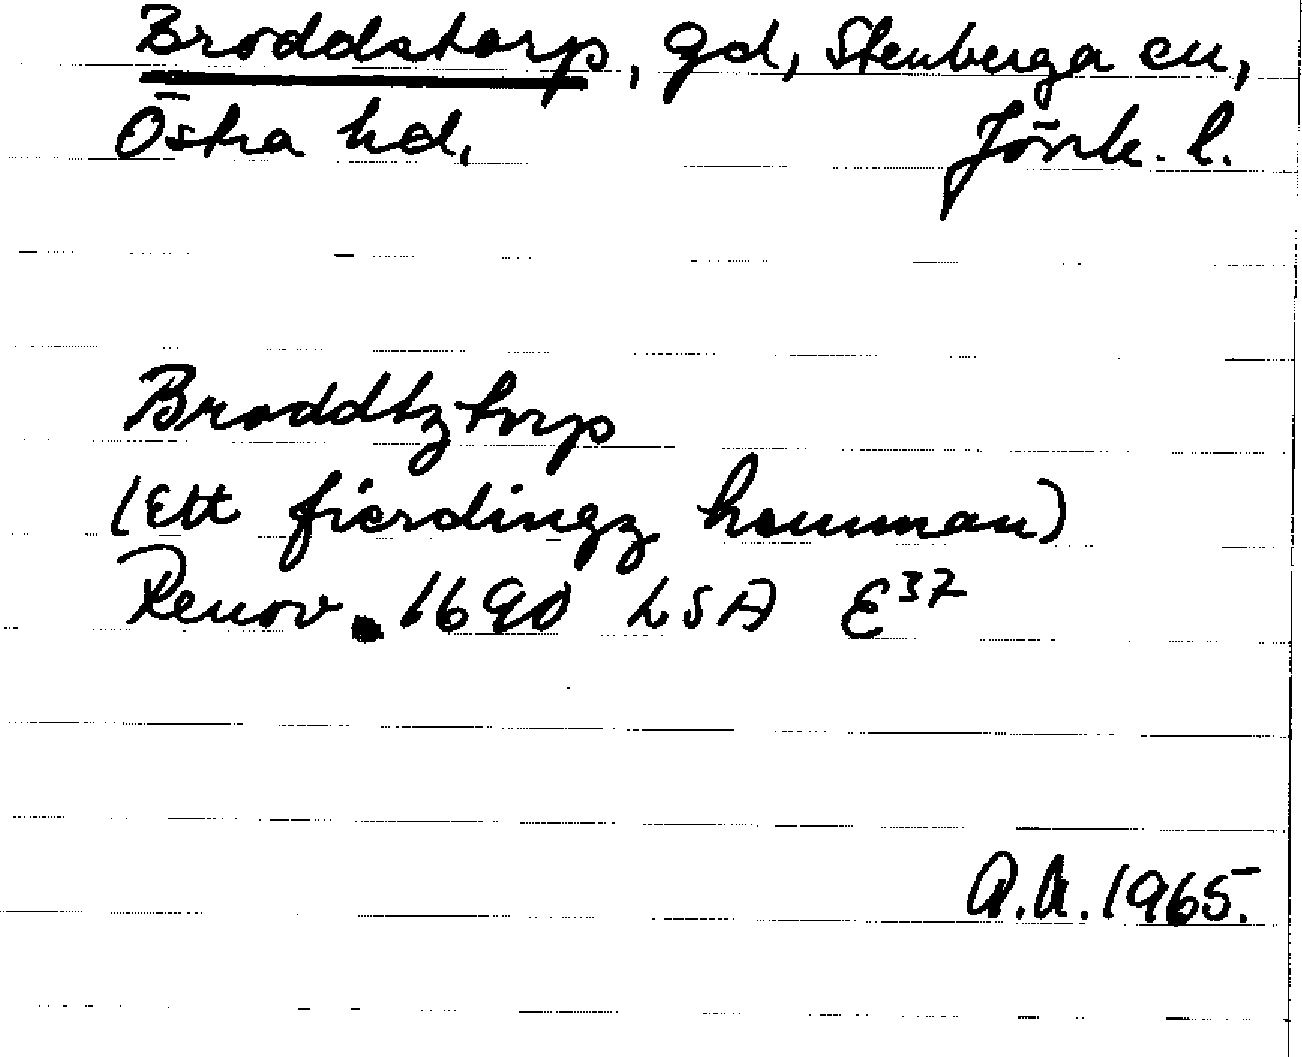 Broddstorp, gd, Stenberga sn,
Östra hd, Jönk. l.
Broddtztorp
(Ett fierdingz hemman)
Renov. 1690 LSA E³⁷
A.A. 1965.